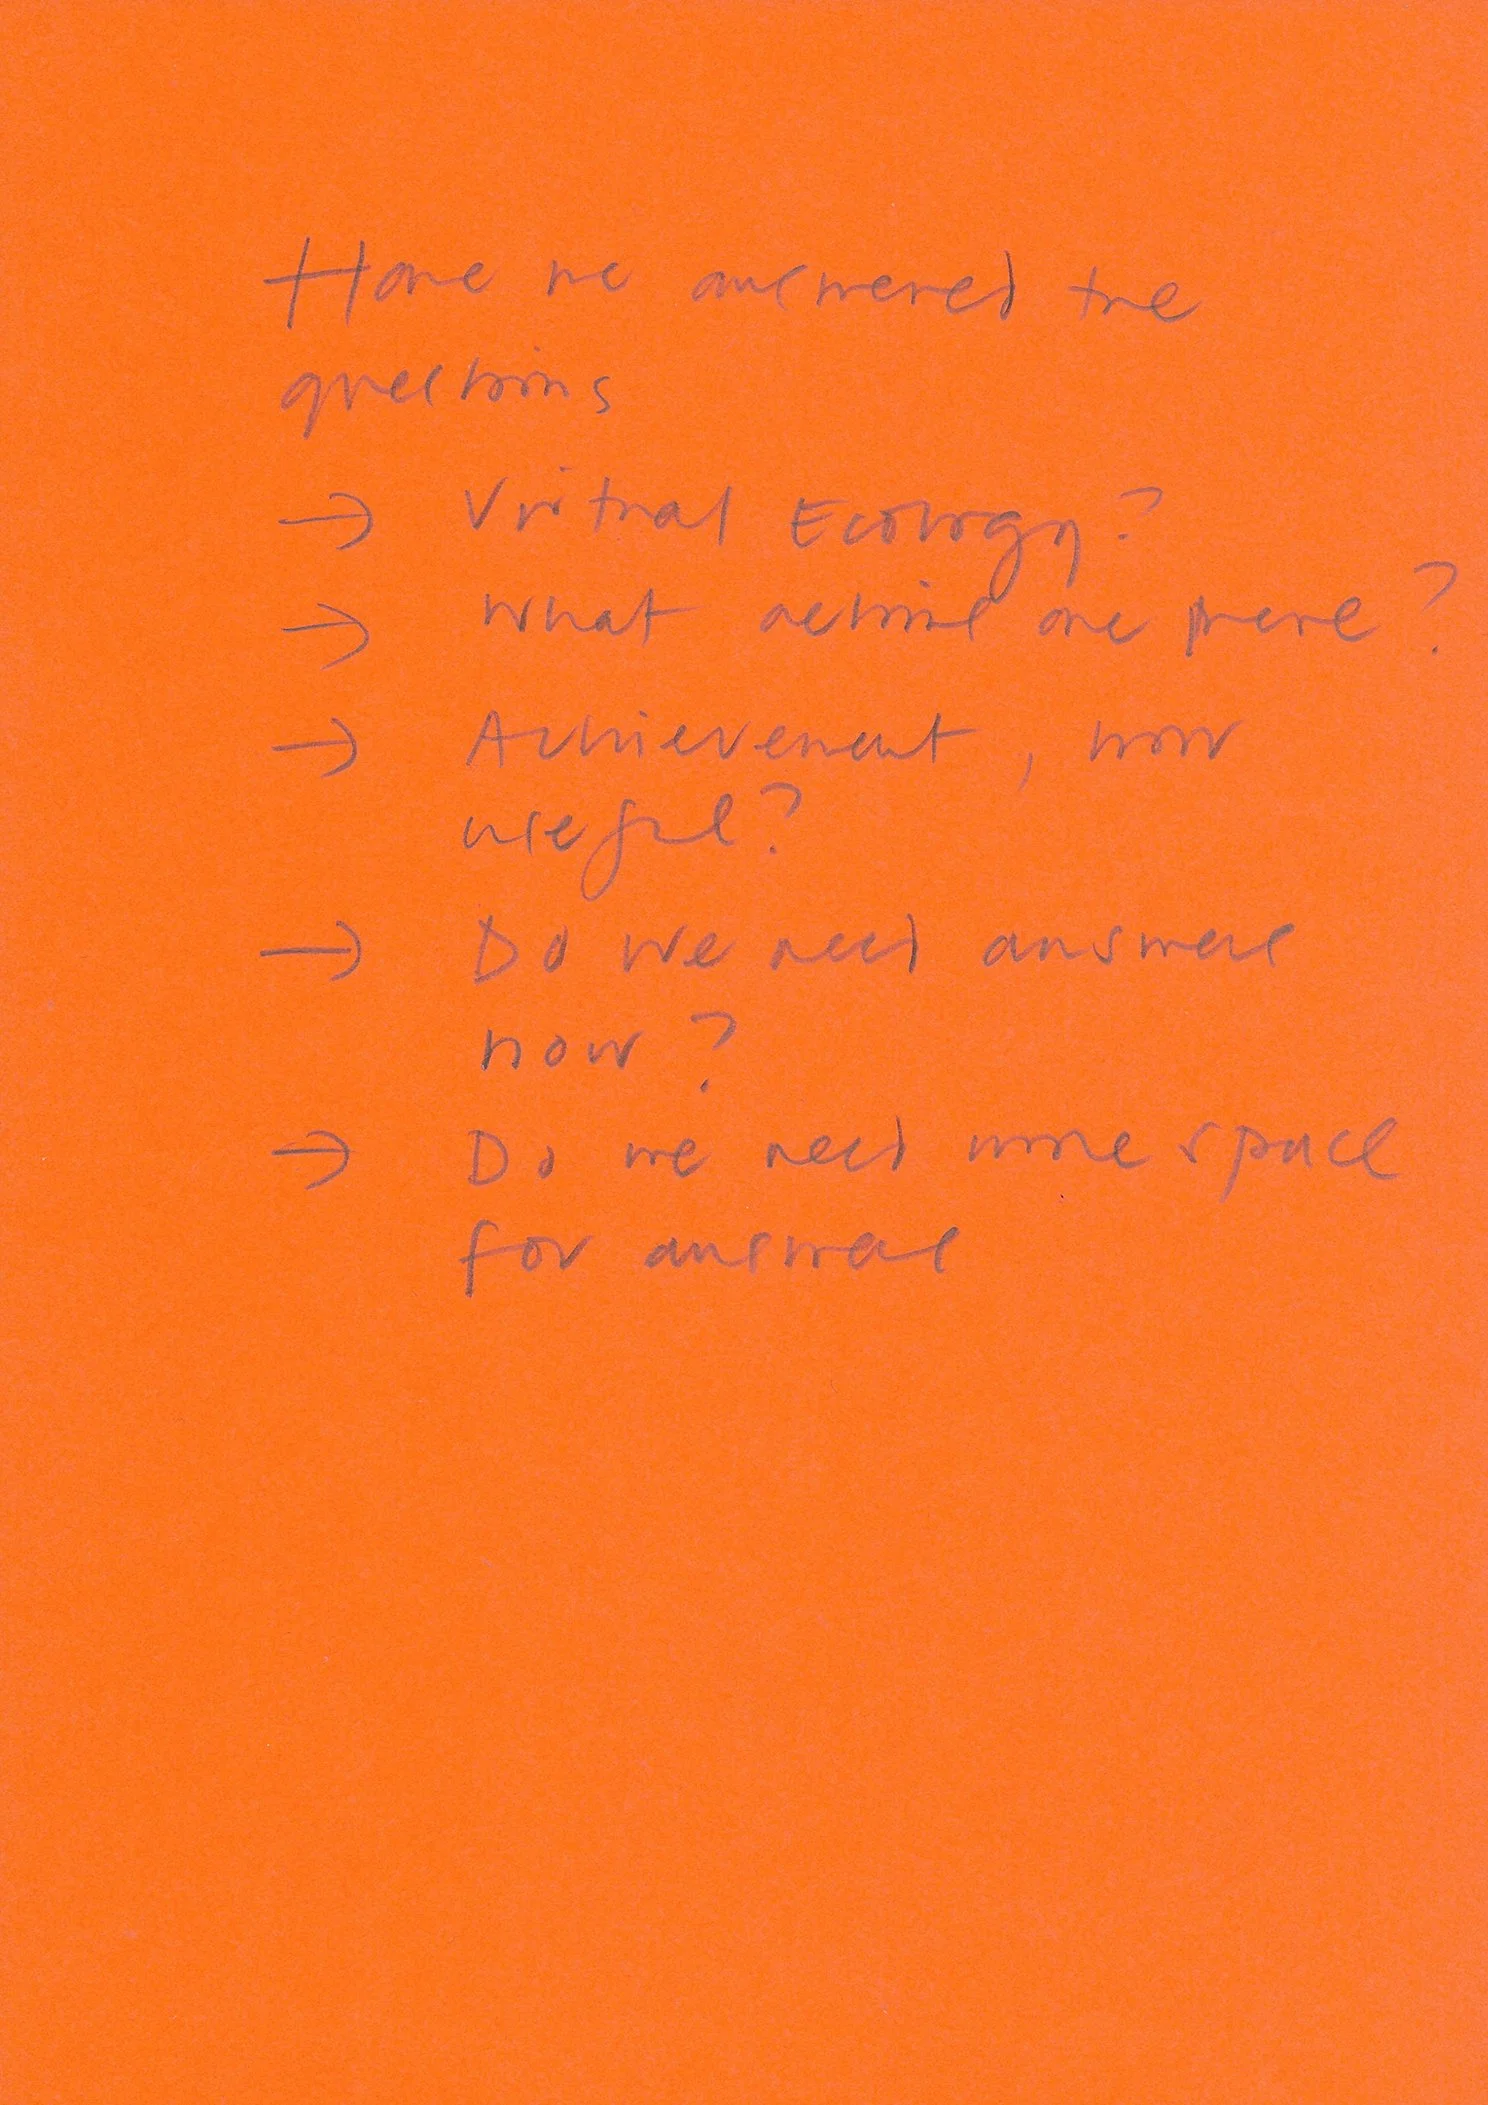 Have we answered the
questions
→ Virtual Ecology?
→ What actions are there?
→ Achievement, how
useful?
→ Do we need answers
now?
→ Do we need more space
for answers